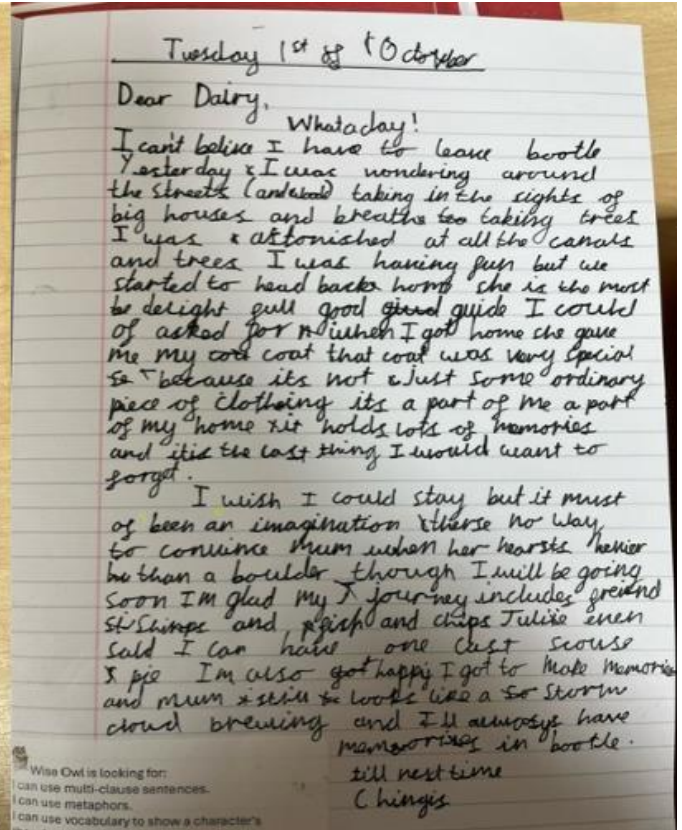 Tuesday 1st of October
Dear Dairy,
What a day!
I can't belive I have to leave bootle
Yesterday I was wondering around
the streets taking in the sights of
big houses and breathe taking trees
I was astonished at all the canals
and trees I was having fun but we
started to head back home she is the most
delight full good guide I could
of asked for when I got home she gave
me my coat that coat was very special
because its not just some ordinary
piece of clothing its a part of me a part
of my home it holds lots of memories
and itis the last thing I would want to
forget.
I wish I could stay but it must
of been an imagination therse no way
to convince mum when her hearsts hevier
than a boulder though I will be going
soon Im glad my journey includes freind
ships and fish and chips Julie even
said I can have one last scouse
pie Im also happy I got to make memories
and mum still looks like a storm
cloud brewing and I'll always have
memories in bootle.
till nest time
Chingis
Wise Owl is looking for:
I can use multi-clause sentences.
I can use metaphors.
I can use vocabulary to show a character's